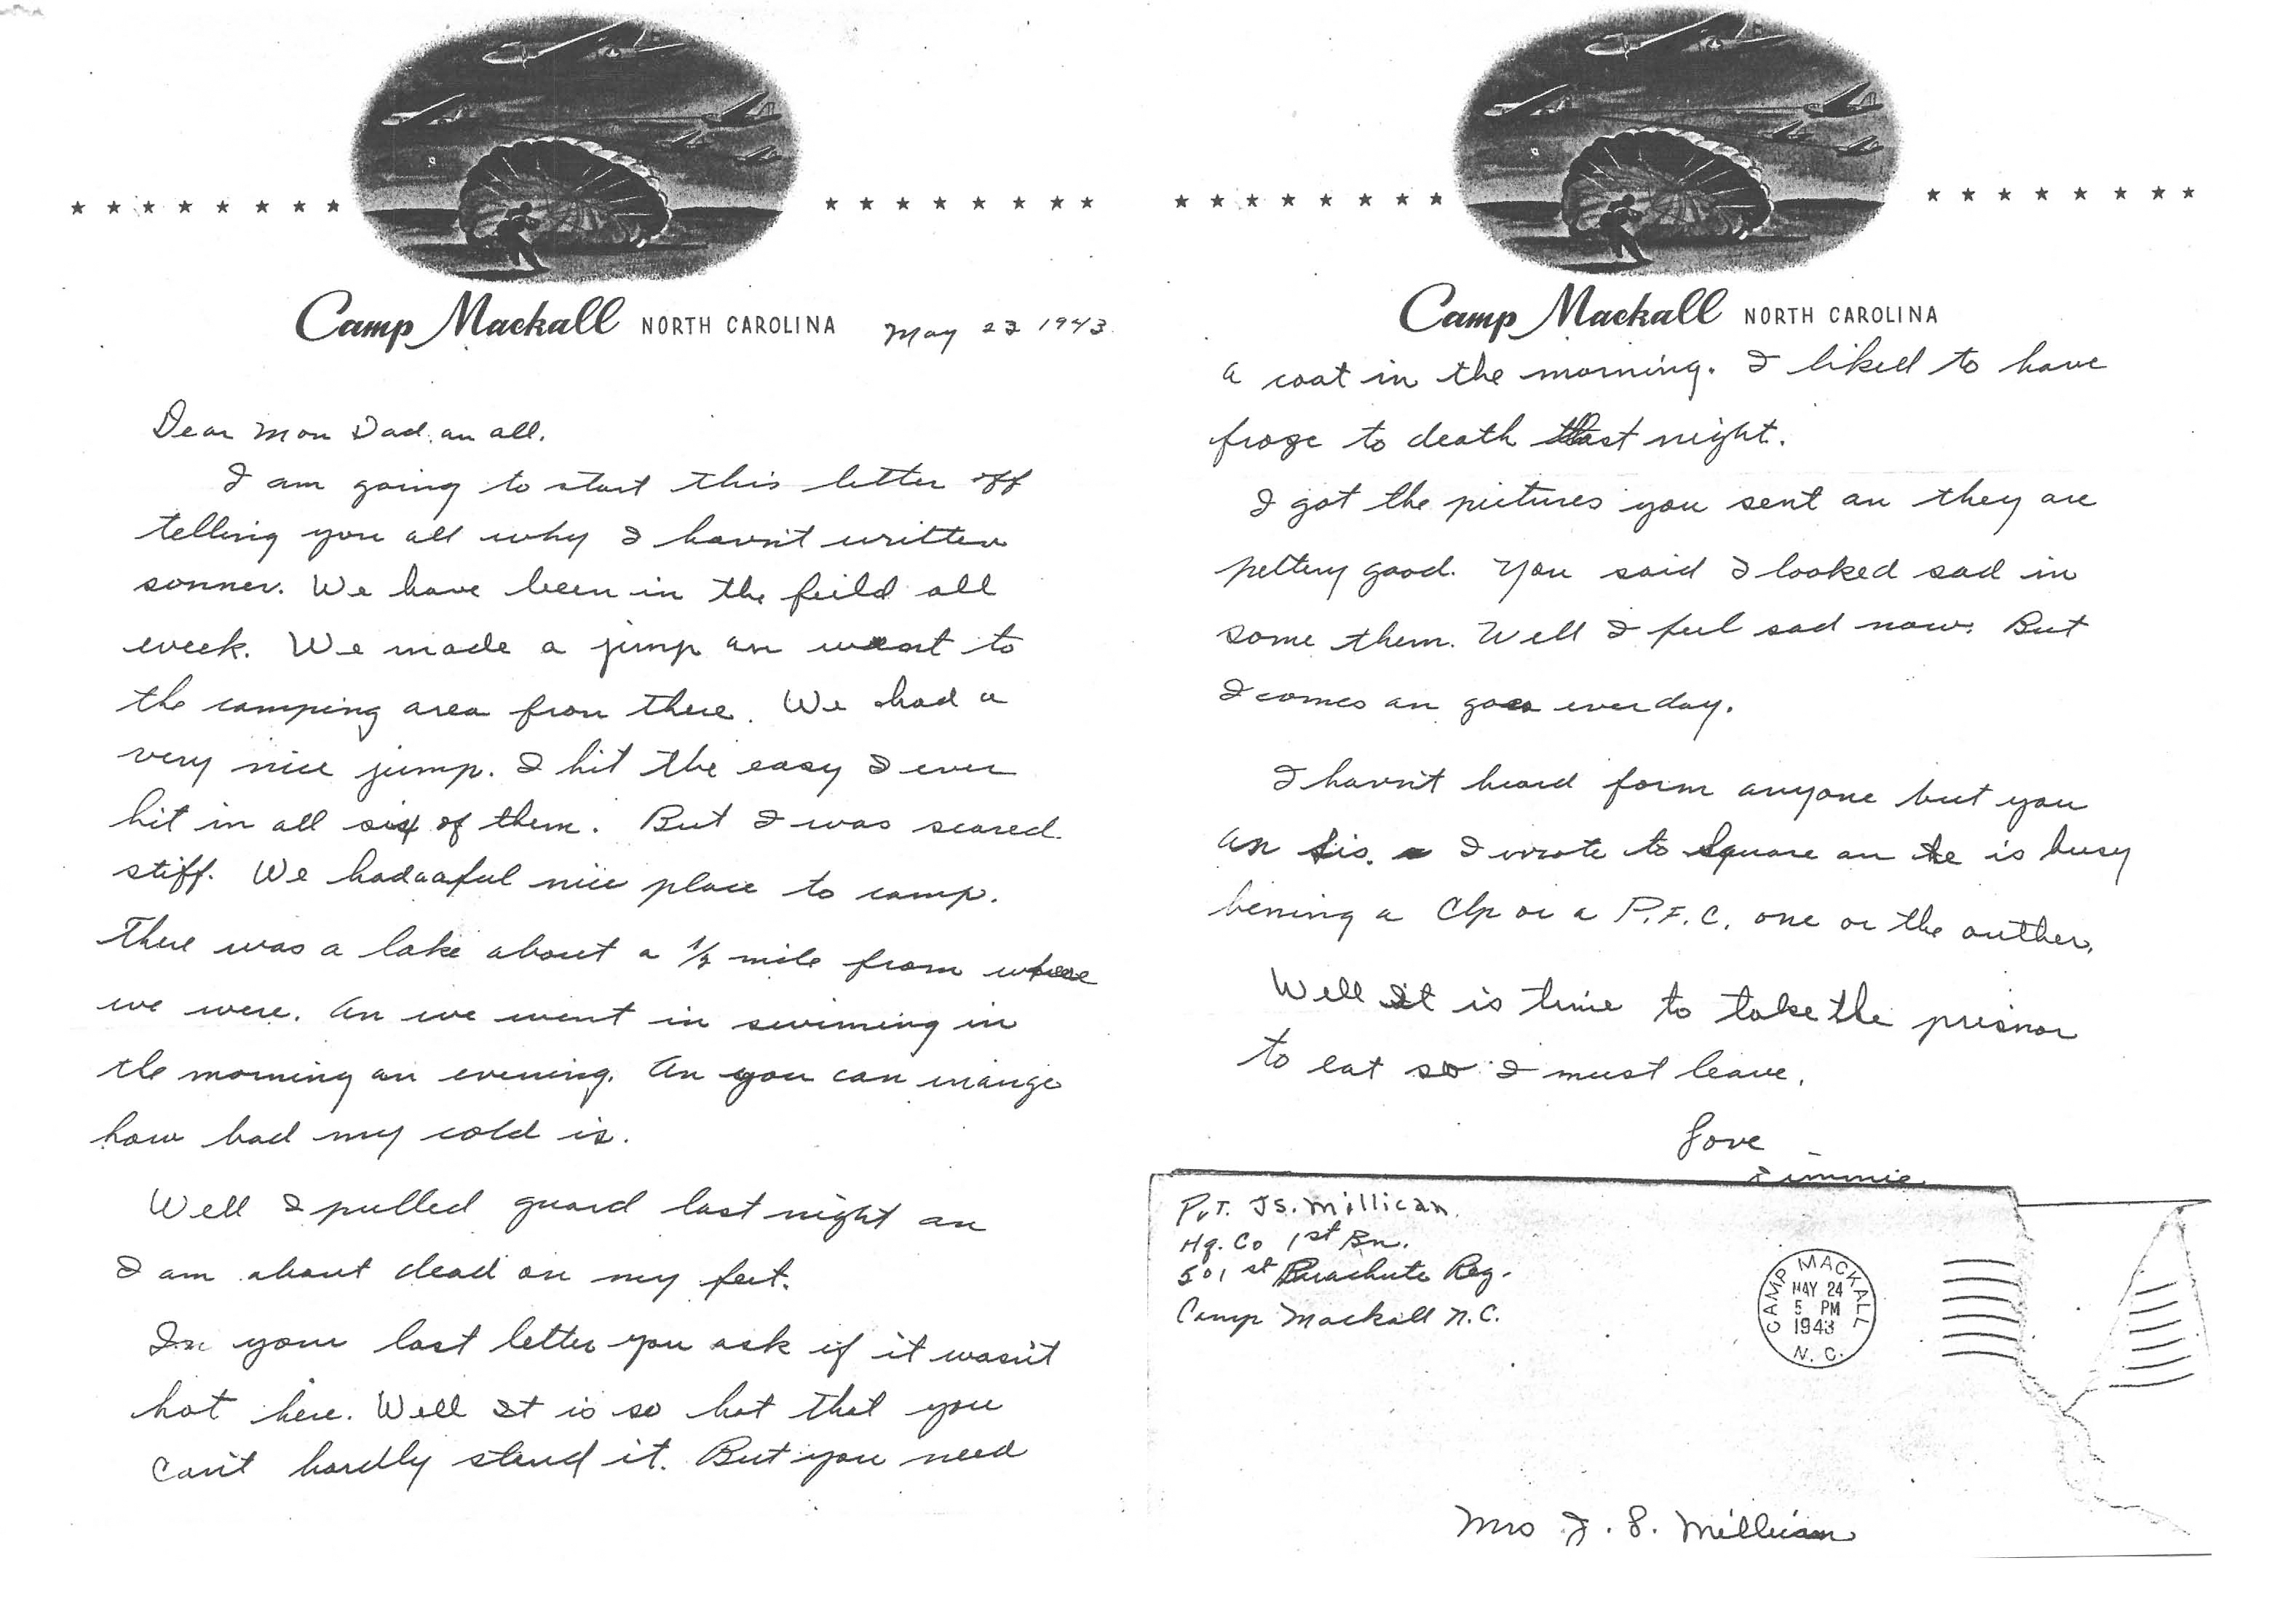 Camp Mackall NORTH CAROLINA May 23 1943
Dear Mon Dad. an all.
I am going to start this letter off
telling you all why I havn't written
sonner. We have been in the feild all
week. We made a jump an went to
the camping area fron there. We had a
very nice jump. I hit the easy I ever
hit in all six of them. But I was scared
stiff. We had aaful nice place to camp.
There was a lake about a 1/2 mile from where
we were. An we went in swiming in
the morning an evening. An you can inange
how bad my cold is.
Well I pulled guard last night an
I am about dead on my feet.
In your last letter you ask if it wasn't
hot here. Well It is so hot that you
can't hardly stand it. But you need
Camp Mackall NORTH CAROLINA
a coat in the morning. I liked to have
froze to death last night.
I got the pictures you sent an they are
pettery good. You said I looked sad in
some them. Well I feel sad now. But
I comes an goes ever day.
I havn't heard form anyone but you
an Sis. I wrote to Square an he is busy
bening a Clp or a P.F.C. one or the outher.
Well It is time to take the prisnor
to eat so I must leave.
Love
Jimmie
Pvt. JS. Millican
Hq. Co 1st Bn.
501st Parachute Reg.
Camp Mackall N.C.
CAMP MACKALL
MAY 24
5 PM
1943
N.C.
Mrs J. S. Millican